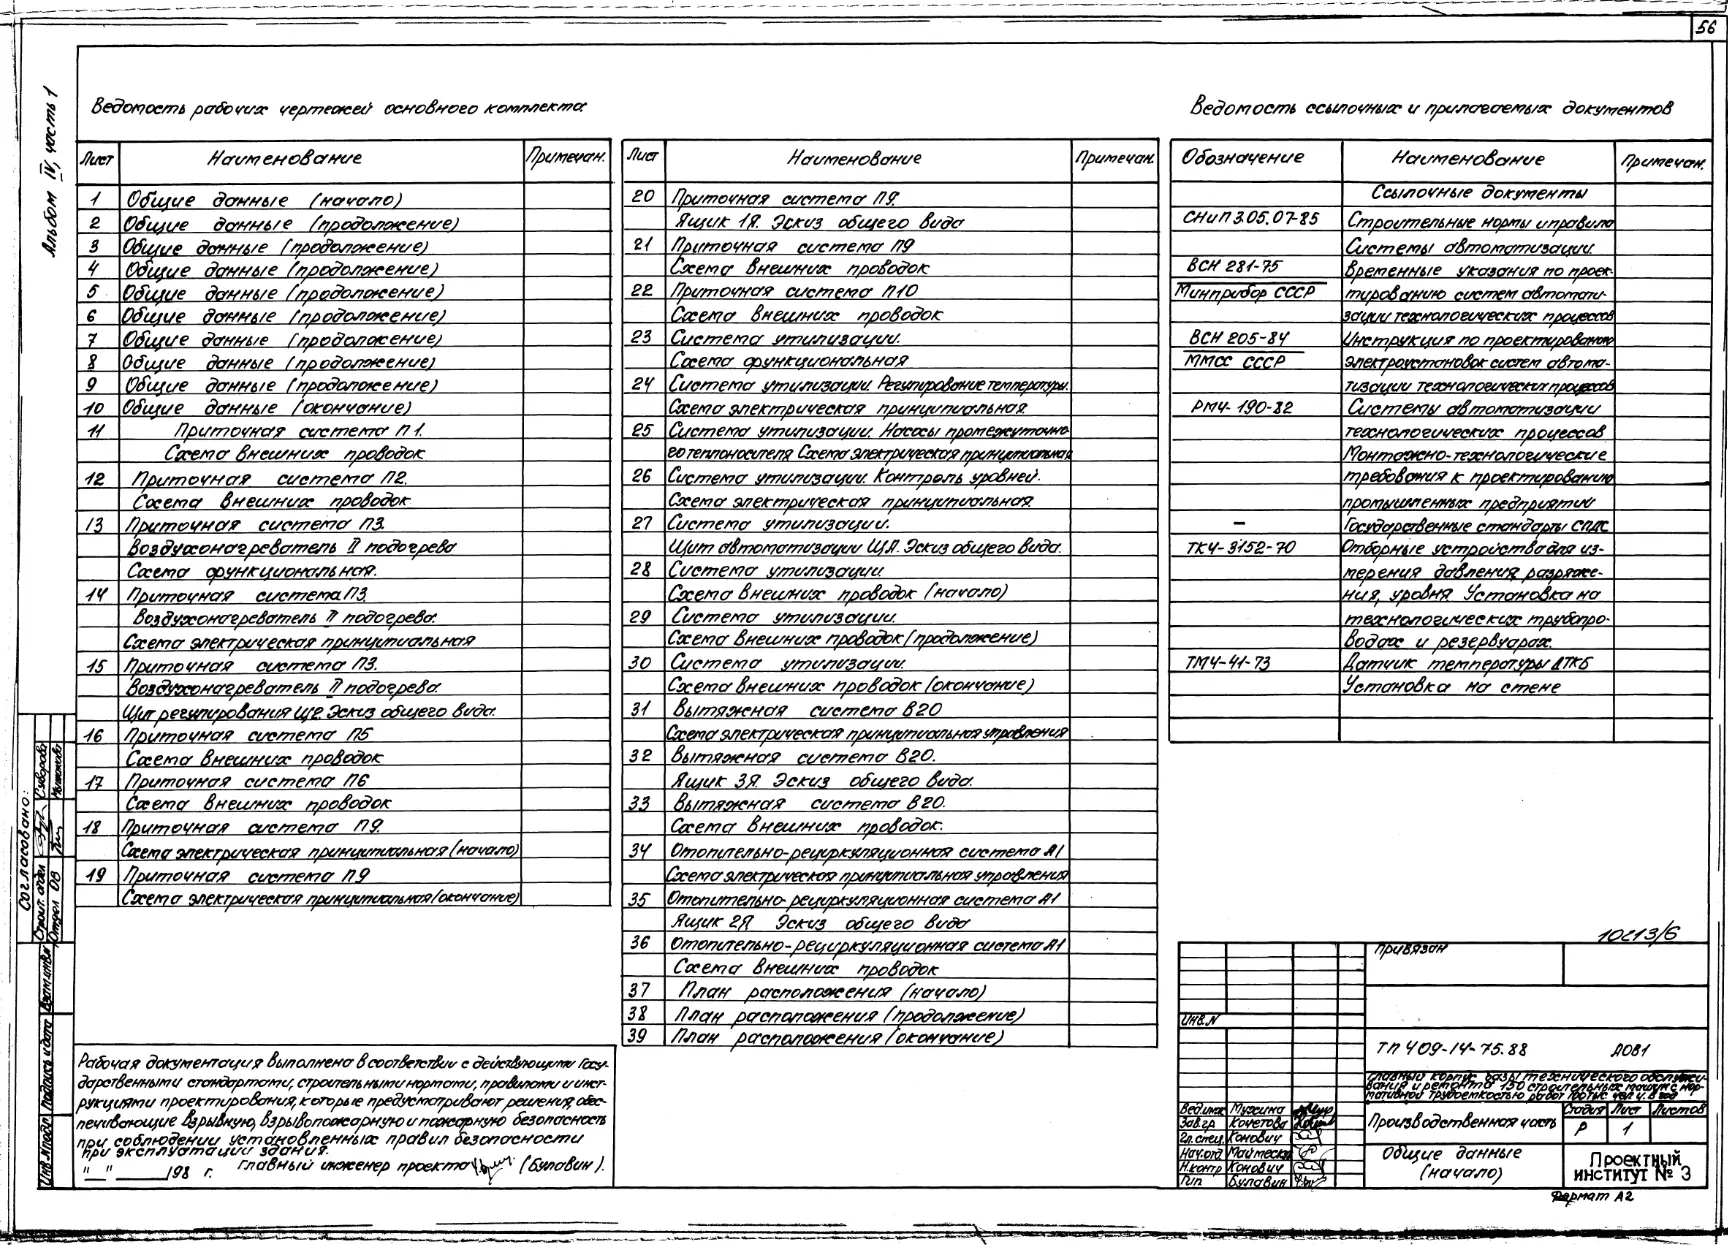 56
Альбом IV, часть 1
Ведомость рабочих чертежей основного комплекта
Лист Наименование Примечан.
1 Общие данные (начало)
2 Общие данные (продолжение)
3 Общие данные (продолжение)
4 Общие данные (продолжение)
5 Общие данные (продолжение)
6 Общие данные (продолжение)
7 Общие данные (продолжение)
8 Общие данные (продолжение)
9 Общие данные (продолжение)
10 Общие данные (окончание)
11 Приточная система П1.
Схема внешних проводок
12 Приточная система П2.
Схема внешних проводок
13 Приточная система П3.
Воздухонагреватель II подогрева
Схема функциональная.
14 Приточная система П3.
Воздухонагреватель II подогрева.
Схема электрическая принципиальная
15 Приточная система П3.
Воздухонагреватель II подогрева
Щит регулирования ЩР. Эскиз общего вида.
16 Приточная система П5
Схема внешних проводок
17 Приточная система П6
Схема внешних проводок
18 Приточная система П9.
Схема электрическая принципиальная (начало)
19 Приточная система П9
Схема электрическая принципиальная (окончание)
Лист Наименование Примечан.
20 Приточная система П9.
Ящик 1Я. Эскиз общего вида
21 Приточная система П9
Схема внешних проводок
22 Приточная система П10
Схема внешних проводок
23 Система утилизации.
Схема функциональная
24 Система утилизации. Регулирование температуры.
Схема электрическая принципиальная
25 Система утилизации. Насосы промежуточно-
го теплоносителя Схема электрическая принципиальная
26 Система утилизации. Контроль уровней.
Схема электрическая принципиальная.
27 Система утилизации.
Щит автоматизации ЩА. Эскиз общего вида.
28 Система утилизации.
Схема внешних проводок (начало)
29 Система утилизации.
Схема внешних проводок (продолжение)
30 Система утилизации.
Схема внешних проводок (окончание)
31 Вытяжная система В20
Схема электрическая принципиальная управления
32 Вытяжная система В20.
Ящик 3Я. Эскиз общего вида.
33 Вытяжная система В20.
Схема внешних проводок.
34 Отопительно-рециркуляционная система А1
Схема электрическая принципиальная управления
35 Отопительно-рециркуляционная система А1
Ящик 2Я Эскиз общего вида
36 Отопительно-рециркуляционная система А1
Схема внешних проводок
37 План расположения (начало)
38 План расположения (продолжение)
39 План расположения (окончание)
Ведомость ссылочных и прилагаемых документов
Обозначение Наименование Примечан.
Ссылочные документы
СНиП 3.05.07-85 Строительные нормы и правила
Системы автоматизации.
ВСН 281-75 Временные указания по проек-
Минприбор СССР тированию систем автомати-
зации технологических процессов
ВСН 205-84 Инструкция по проектированию
ММСС СССР электроустановок систем автома-
тизации технологических процессов
РМ4-190-82 Системы автоматизации
технологических процессов
Монтажно-технологические
требования к проектированию
промышленных предприятий
— Государственные стандарты СПДС
ТК4-3152-70 Отборные устройства для из-
мерения давления, разряже-
ния, уровня Установка на
технологических трубопро-
водах и резервуарах.
ТМ4-41-73 Датчик температуры ДТКБ
Установка на стене
Рабочая документация выполнена в соответствии с действующими Госу-
дарственными стандартами, строительными нормами, правилами и инст-
рукциями проектирования, которые предусматривают решения, обес-
печивающие взрывную, взрывопожарную и пожарную безопасность
при соблюдении установленных правил безопасности
при эксплуатации здания.
" " 198 г. Главный инженер проекта (Булавин).
Согласовано:
Строит. отдел Суворова
Отдел ОВ
Инв.№ подл Подпись и дата Взам.инв.№
10213/6
Привязан
Инв.N
ТП 409-14-75.88 АОВ1
Главный корпус базы технического обслужи-
вания и ремонта 150 строительных машин с нор-
мативной трудоемкостью работ 100 тыс чел.ч. в год
Вед.инж Мухина
Зав.гр. Кочетова
Гл.спец. Конович
Нач.отд
Н.контр Конович
Гип Булавин
Производственная часть
Стадия Лист Листов
Р 1
Общие данные
(начало)
Проектный
институт № 3
Формат А2